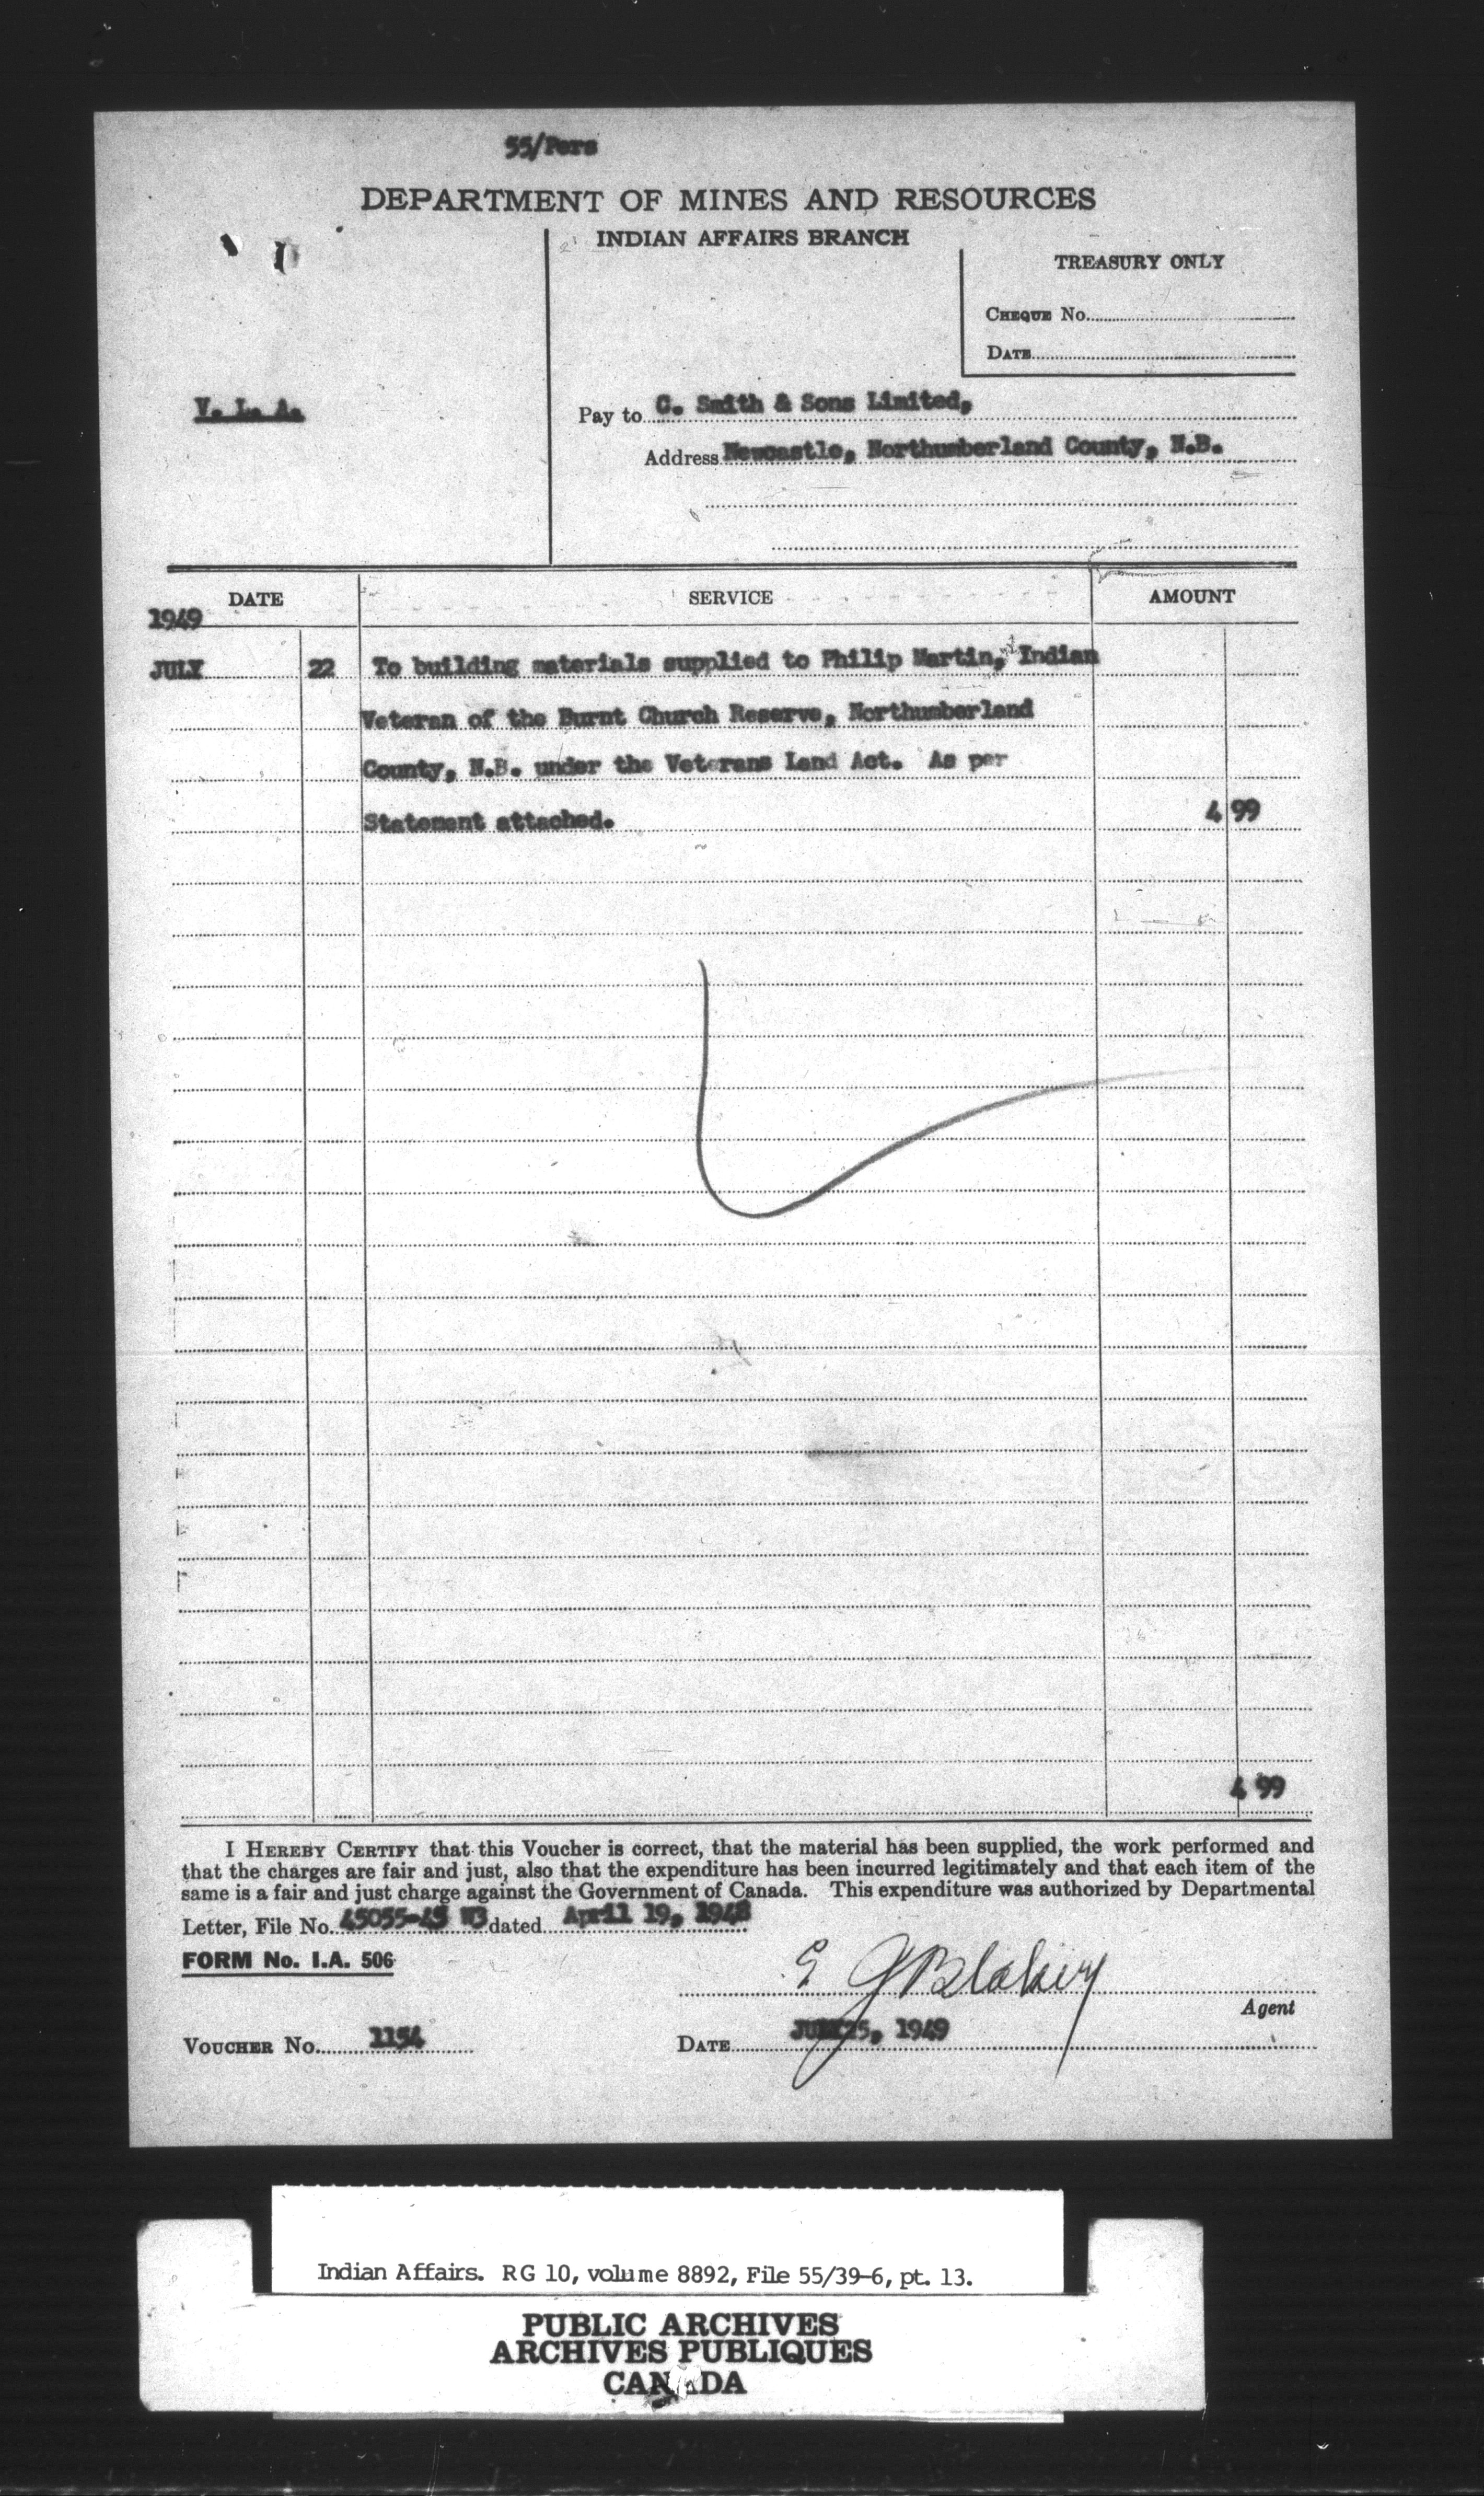 55/Pers
DEPARTMENT OF MINES AND RESOURCES
INDIAN AFFAIRS BRANCH
TREASURY ONLY
CHEQUE No.
DATE
V. L. A.
Pay to C. Smith & Sons Limited,
Address Newcastle, Northumberland County, N.B.
DATE SERVICE AMOUNT
1949
JULY 22 To building materials supplied to Philip Martin, Indian
Veteran of the Burnt Church Reserve, Northumberland
County, N.B. under the Veterans Land Act. As per
Statement attached. 4 99
4 99
I HEREBY CERTIFY that this Voucher is correct, that the material has been supplied, the work performed and
that the charges are fair and just, also that the expenditure has been incurred legitimately and that each item of the
same is a fair and just charge against the Government of Canada. This expenditure was authorized by Departmental
Letter, File No. 45055-45 W3 dated April 19, 1948
FORM No. I.A. 506
E J Blakey
Agent
VOUCHER No. 1154 DATE 25, 1949
Indian Affairs. RG 10, volume 8892, File 55/39-6, pt. 13.
PUBLIC ARCHIVES
ARCHIVES PUBLIQUES
CANADA